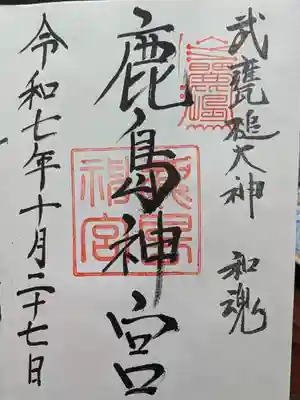 武甕槌大神 和魂
鹿島神宮
鹿島神宮
令和七年十月二十七日